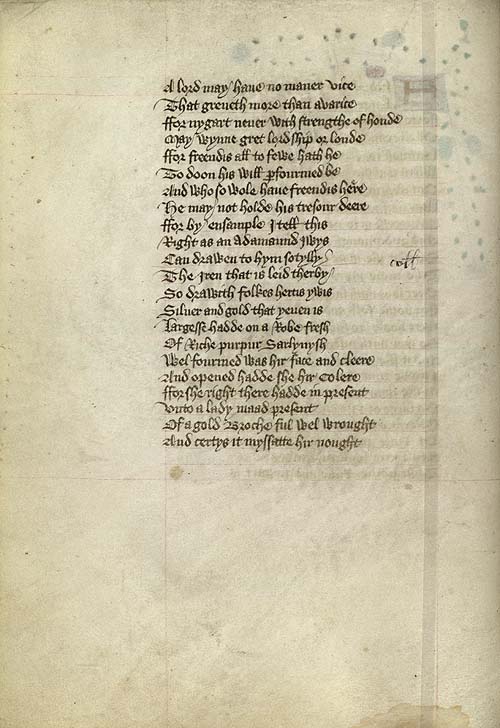 A lord may haue no maner vice
That greueth more than auarice
ffor nygart neuer with strengthe of honde
May wynne gret lordship or londe
ffor freendis all to fewe hath he
To doon his will ꝑfourmed be
And who so wole haue freendis heere
He may not holde his tresour deere
ffor by ensample I tell this
Right as an Adamaund iwys
Can drawen to hym sotylly
The Iren that is leid therby
So drawith folkes hertis ywis
Siluer and gold that yeuen is
Largesse hadde on a Robe fresh
Of Riche purpur Sarlynysh
Wel fourmed was hir face and cleere
And opened hadde she hir Colere
ffor she right there hadde in present
Vnto a lady maad present
Of a gold Broche ful wel wrought
And certys it myssatte hir nought